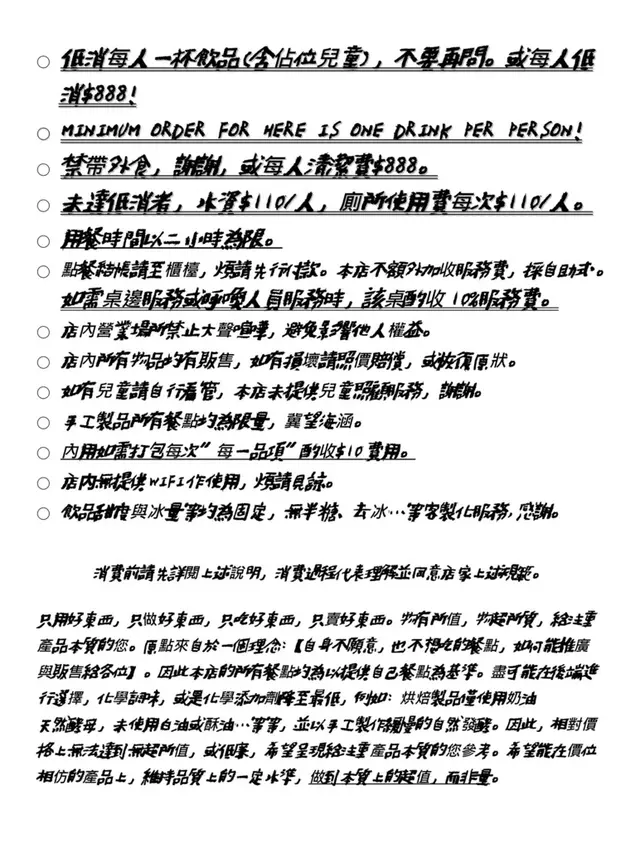 低消每人一杯飲品(含佔位兒童)，不要再問。或每人低
消$888!
MINIMUM ORDER FOR HERE IS ONE DRINK PER PERSON!
禁帶外食，謝謝，或每人清潔費$888。
未達低消者，水資$110/人，廁所使用費每次$110/人。
用餐時間以二小時為限。
點餐結帳請至櫃檯，煩請先行付款。本店不額外加收服務費，採自助式。
如需桌邊服務或呼喚人員服務時，該桌酌收10%服務費。
店內營業場所禁止大聲喧嘩，避免影響他人權益。
店內所有物品均有販售，如有損壞請照價賠償，或恢復原狀。
如有兒童請自行看管，本店未提供兒童照顧服務，謝謝。
手工製品所有餐點均為限量，冀望海涵。
內用如需打包每次"每一品項"酌收$10費用。
店內無提供WIFI作使用，煩請見諒。
飲品甜度與冰量等均為固定，無半糖、去冰…等客製化服務，感謝。
消費前請先詳閱上述說明，消費過程代表理解並同意店家上述規範。
只用好東西，只做好東西，只吃好東西，只賣好東西。物有所值，物超所質，給注重
產品本質的您。原點來自於一個理念：【自身不願意，也不想吃的餐點，如何能推廣
與販售給各位】。因此本店的所有餐點均為以提供自己餐點為基準。盡可能在後端進
行選擇，化學調味，或是化學添加劑降至最低，例如：烘焙製品僅使用奶油
天然酵母，未使用白油或酥油…等等，並以手工製作緩慢的自然發酵。因此，相對價
格上無法達到無超所值，或低廉，希望呈現給注重產品本質的您參考。希望能在價位
相仿的產品上，維持品質上的一定水準，做到本質上的超值，而非量。